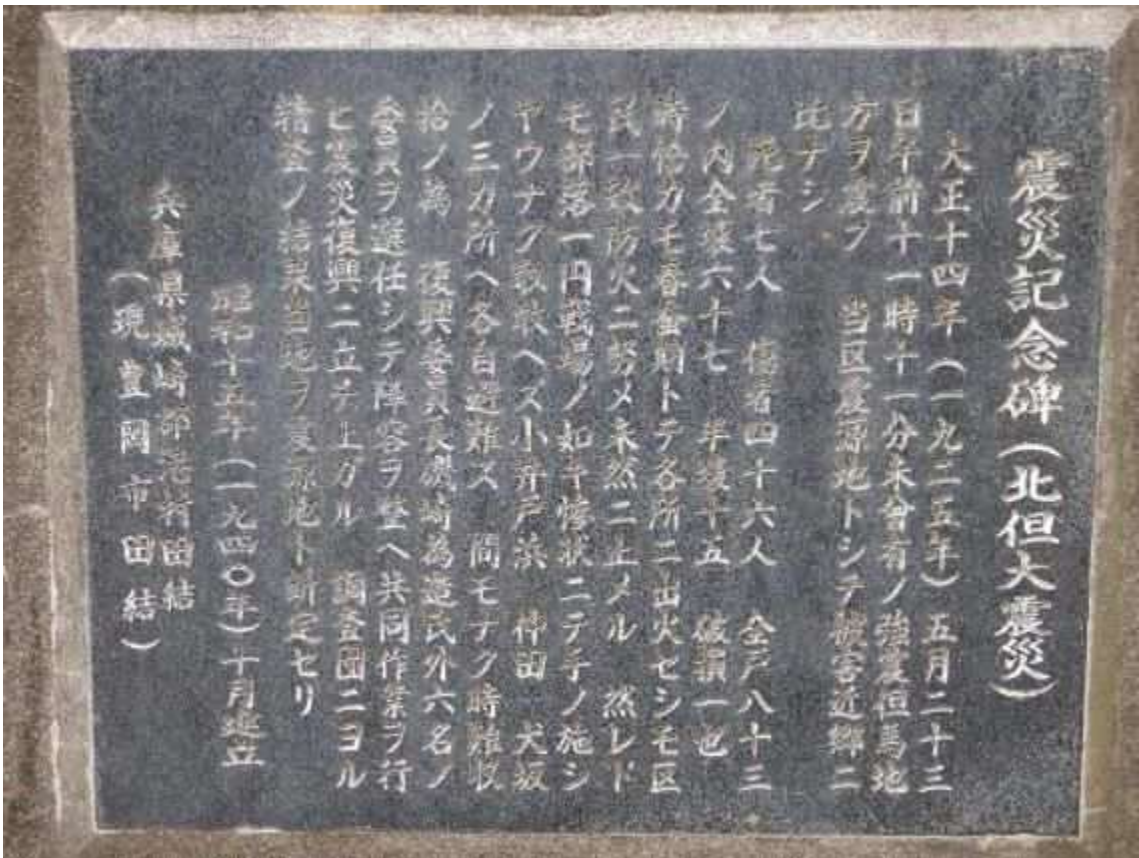 震災記念碑(北但大震災)
大正十四年(一九二五年)五月二十三
日午前十一時十一分未會有ノ強震但馬地
方ヲ震フ 当区震源地トシテ被害近郷ニ
比ナシ
死者七人 傷者四十六人 全戸八十三
ノ内全壊六十七 半壊十五 破損一也
時恰カモ春蚕期トテ各所ニ出火セシモ区
民一致防火ニ努メ未然ニ止メル 然レド
モ部落一円戦場ノ如キ惨状ニテ手ノ施シ
ヤウナク取敢ヘス小井戸浜 仲田 犬坂
ノ三カ所ヘ各自避難ス 間モナク時難収
拾ノ為 復興委員長磯崎為造氏外六名ノ
委員ヲ選任シテ陣容ヲ整ヘ共同作業ヲ行
ヒ震災復興ニ立チ上カル 調査団ニヨル
精査ノ結果当地ヲ震源地ト断定セリ
昭和十五年(一九四〇年)十月建立
兵庫県城崎郡港村田結
(現豊岡市田結)